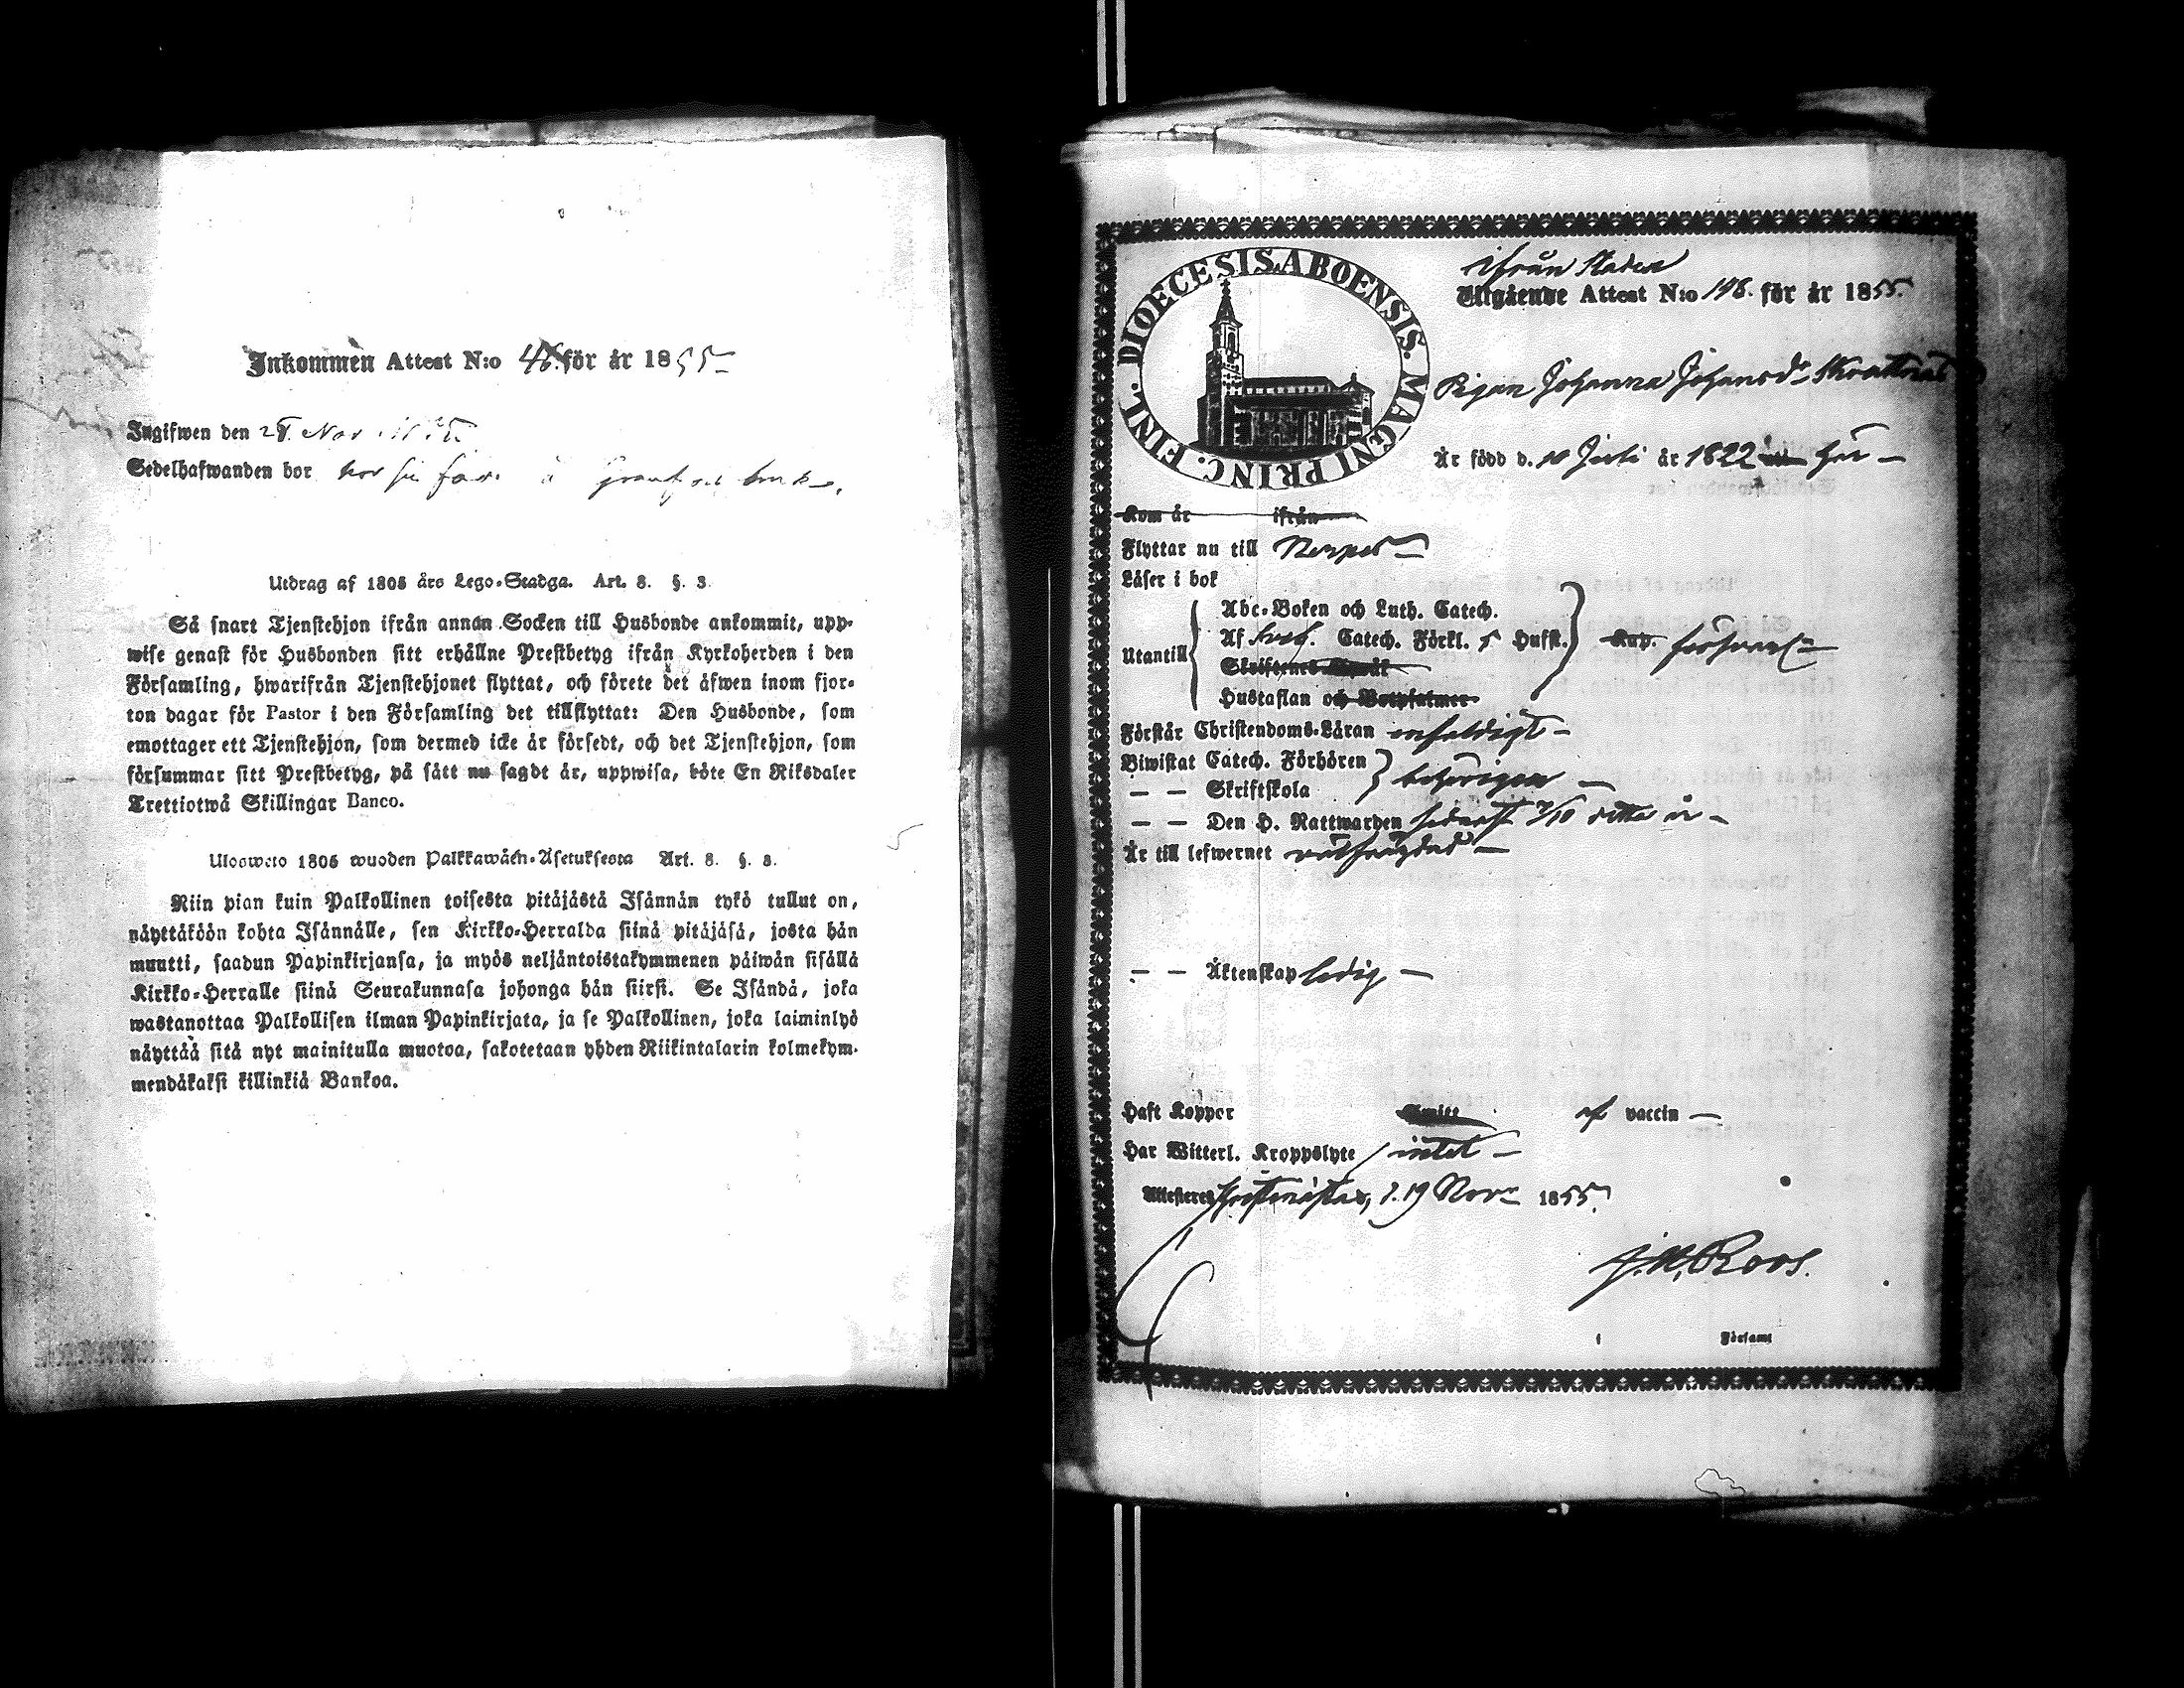 Inkommen Attest N:o 46. för år 1855
Ingifwen den 28. Nov.
Sedelhafwanden bor hos sin far å
Utdrag af 1805 års Lego-Stadga. Art. 8. §. 3.
Så snart Tjenstehjon ifrån annan Socken till Husbonde ankommit, upp-
wise genast för Husbonden sitt erhållne Prestbetyg ifrån Kyrkoherden i den
Församling, hwarifrån Tjenstehjonet flyttat, och förete det äfwen inom fjor-
ton dagar för Pastor i den Församling det tillflyttat: Den Husbonde, som
emottager ett Tjenstehjon, som dermed icke är försedt, och det Tjenstehjon, som
försummar sitt Prestbetyg, på sätt nu sagdt är, uppwisa, böte En Riksdaler
Trettiotwå Skillingar Banco.
Ulosweto 1805 wuoden Palkkawäen-Asetuksesta Art. 8. §. 3.
Niin pian kuin Palkollinen toisesta pitäjästä Isännän tykö tullut on,
näyttäköön kohta Isännälle, sen Kirkko-Herralda siinä pitäjäsä, josta hän
muutti, saadun Papinkirjansa, ja myös neljäntoistakymmenen päiwän sisällä
Kirkko-Herralle siinä Seurakunnasa johonga hän siirsi. Se Isändä, joka
wastanottaa Palkollisen ilman Papinkirjata, ja se Palkollinen, joka laiminlyö
näyttää sitä nyt mainitulla muotoa, sakotetaan yhden Riikintalarin kolmekym-
mendäkaksi killinkiä Bankoa.
DIOECESIS ABOENSIS. MAGNI PRINC. FINL.
ifrån Staden
Utgående Attest N:o 148. för år 1855.
Pigan Johanna Johansdr Skrattnäs
Är född d. 10 Juli år 1822 här
Kom år ifrån
Flyttar nu till Nerpes
Läser i bok
Abc-Boken och Luth. Catech.
Utantill Af Catech. Förkl. Hufst. Kap. försvarl.
Skriftenes
Hustaflan och Botpsalmer
Förstår Christendoms-Läran enfaldigt
Biwistat Catech. Förhören
— — Skriftskola behörigen
— — Den H. Nattwarden senast 7/10 detta år
Är till lefwernet välfrägdad
— — Äktenskap ledig
Haft Koppor Smitt af vaccin
Har Witterl. Kroppslyte intet
Attesteres Christinæstad, d. 19 Novr 1855.
J. M. Roos.
i Församl